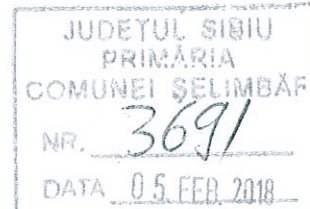 JUDEȚUL SIBIU
PRIMĂRIA
COMUNEI ȘELIMBĂR
NR. 3691
DATA 05. FEB. 2018